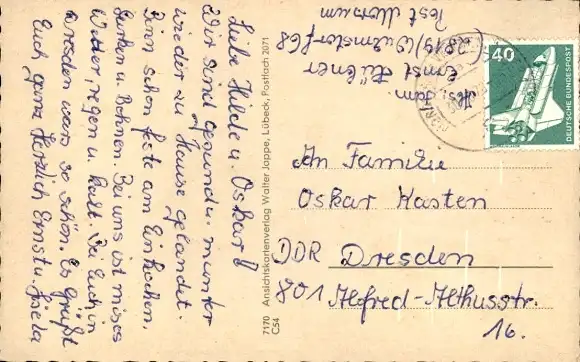 Liebe Hilde u. Oskar!
Wir sind gesund u. munter
wieder zu Hause gelandet.
Bin schon feste am Einkochen,
Gurken u. Bohnen. Bei uns ist mises
Wetter, regen u. kalt. Bei Euch in
Dresden wars so schön. Es grüßt
Euch ganz herzlich Ernst u. Gisela
7170 Ansichtskartenverlag Walter Joppe, Lübeck, Postfach 2071
C54
Abs. Fam.
Ernst Hübner
2819/Wulmstorf 68
Post Morsum
40
DEUTSCHE BUNDESPOST
An Familie
Oskar Kasten
DDR Dresden
801 Alfred-Althusstr.
16.